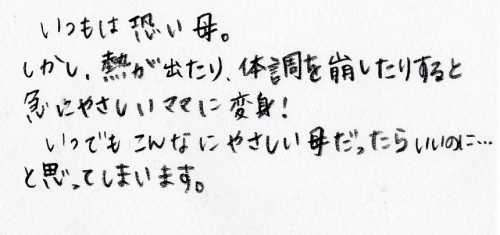 いつもは恐い母。
しかし、熱が出たり、体調を崩したりすると
急にやさしいママに変身！
いつでもこんなにやさしい母だったらいいのに…
と思ってしまいます。